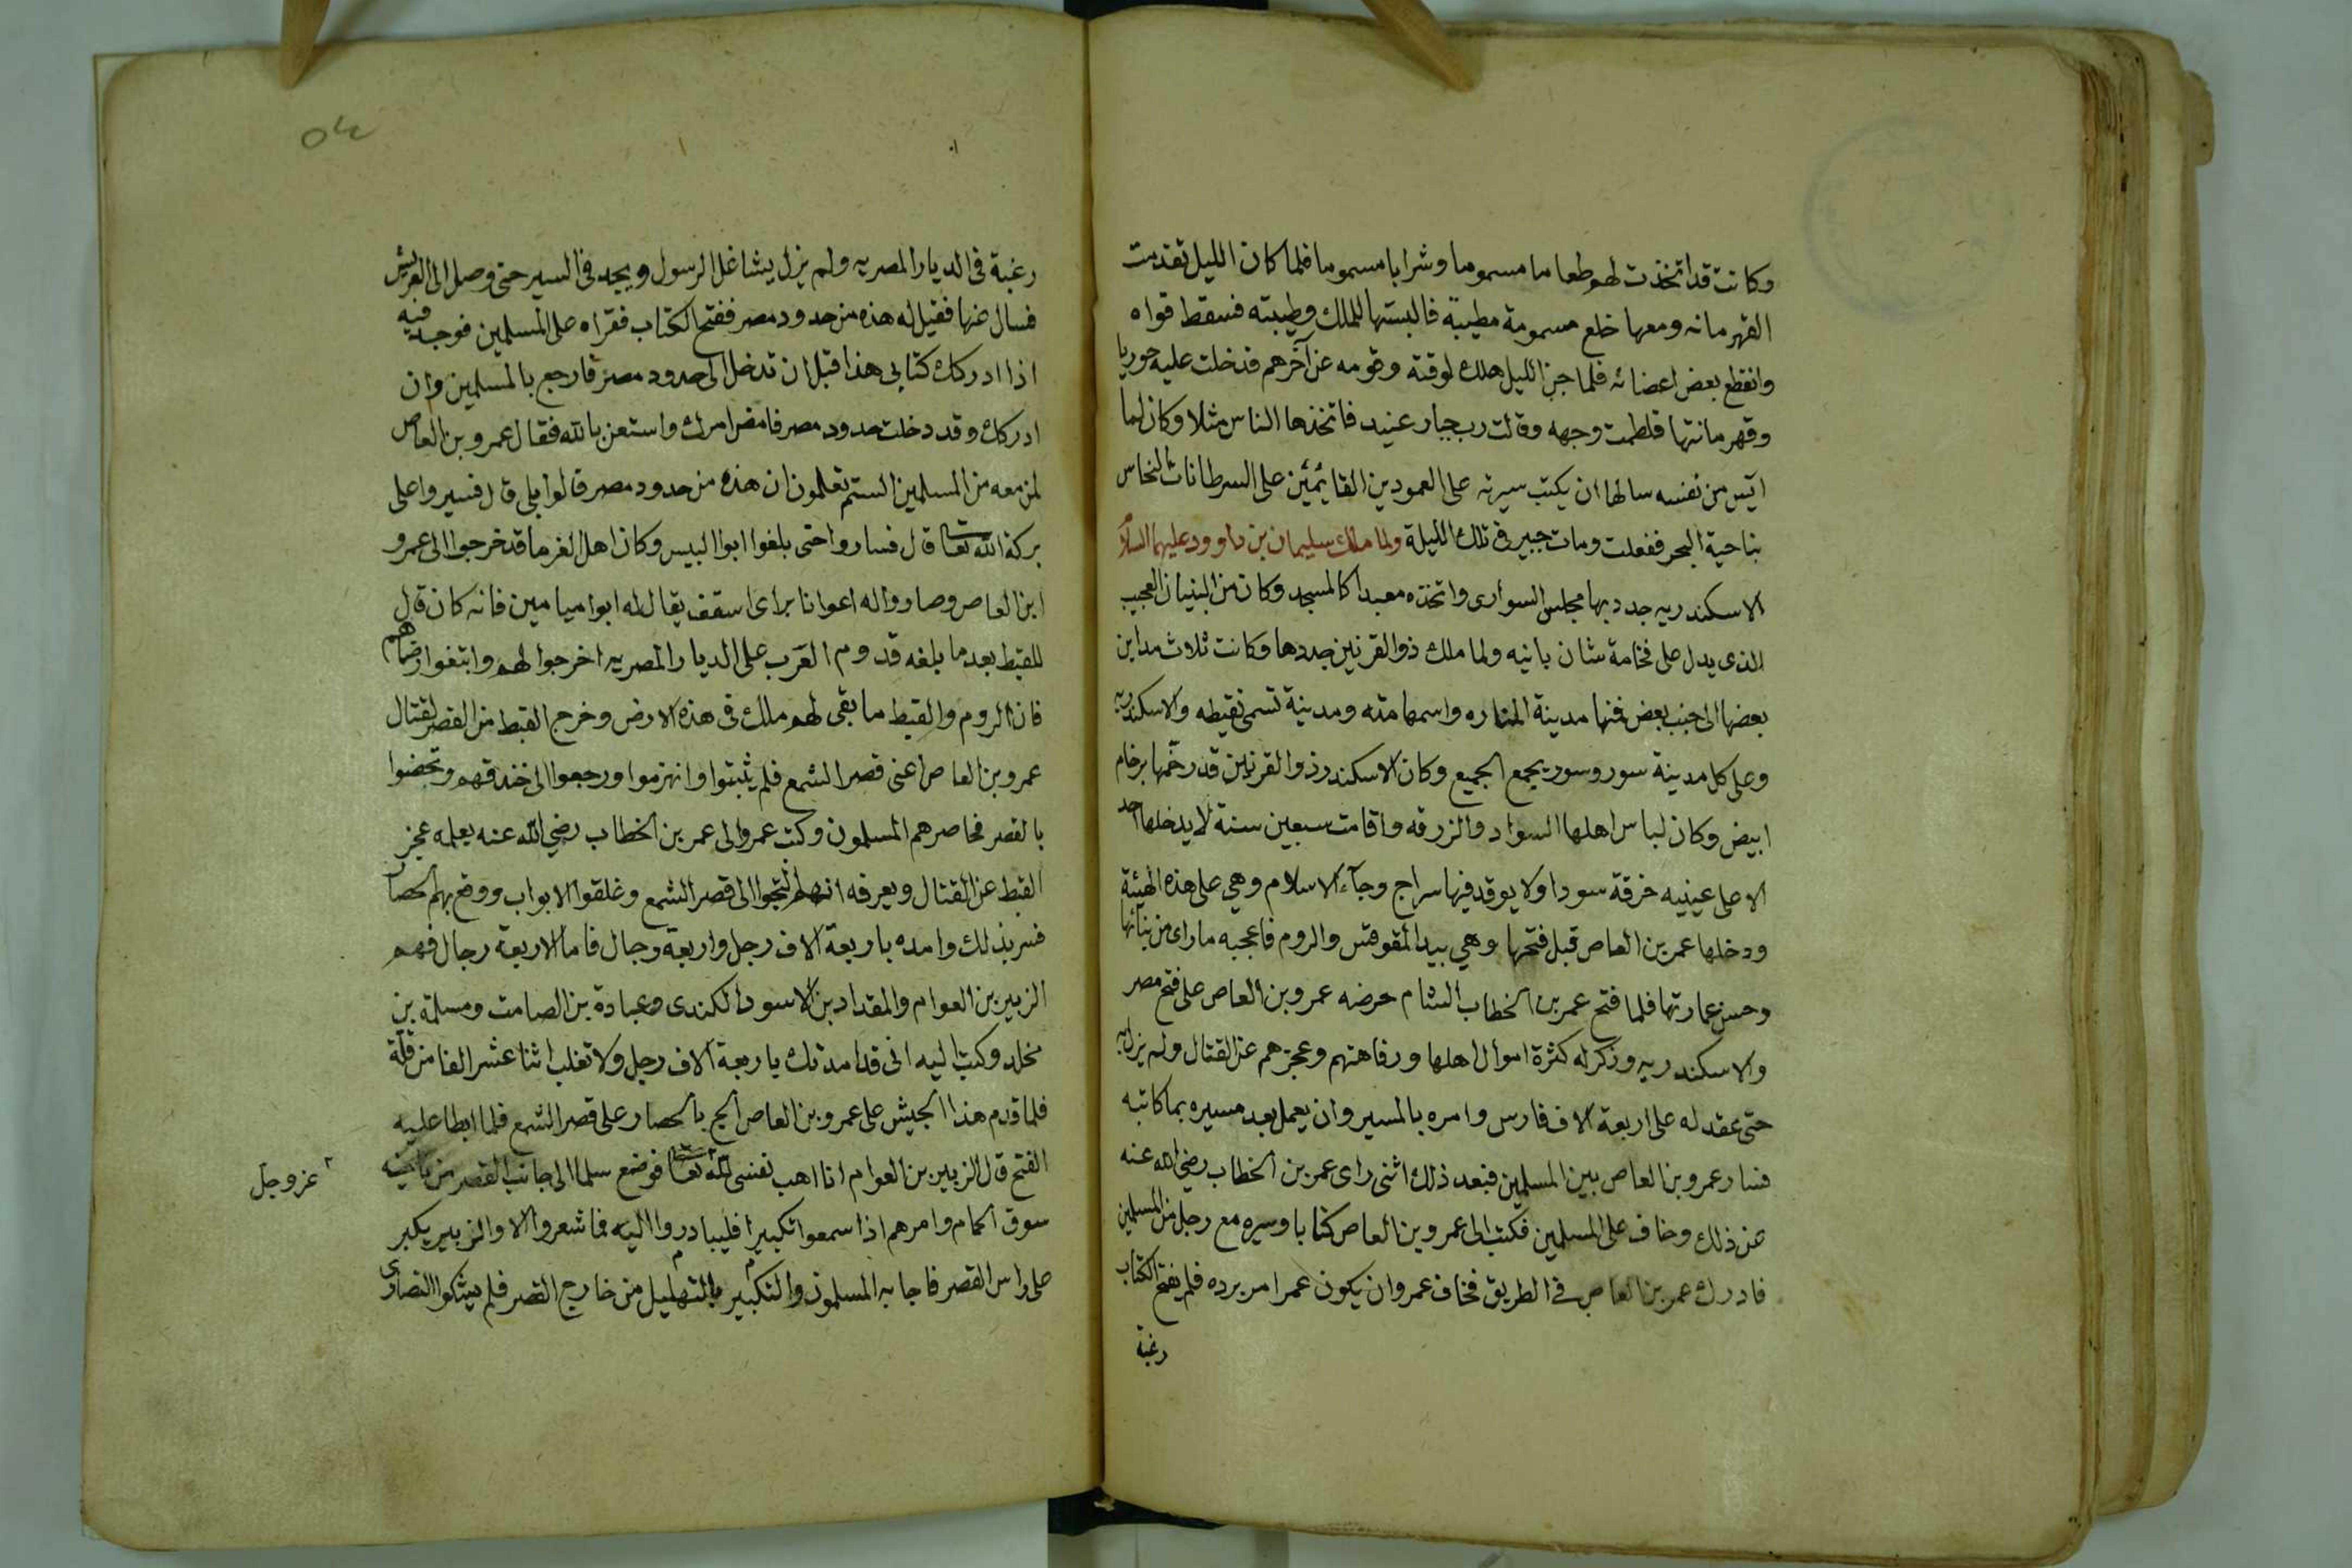 وكانت قد اتخذت لهم طعاما مسموما وشرابا مسموما فلما كان الليل تقدمت
القهرمانه ومعها خلع مسمومة مطيبة فالبستها للملك وطيبته فسقط قواه
وانقطع بعض اعضائه فلما جن الليل هلك لوقته وقومه عن آخرهم فدخلت عليه حوريا
وقهرمانتها فلطمت وجهه وقالت رب جبار عنيد فاتخذها الناس مثلا وكان لما
ايس من نفسه سالها ان يكتب سيرته على العمودين القايمين على السرطانات النحاس
بناحية البحر ففعلت ومات جبير في تلك الليلة ولما ملك سليمان بن داوود عليهما السلام
الاسكندريه جدد بها مجلس السوارى واتخذه معبدا كالمسجد وكان من البنيان العجيب
الذى يدل على فخامة شان بانيه ولما ملك ذو القرنين جددها وكانت ثلاث مداين
بعضها الى جنب بعض فمنها مدينة المناره واسمها منه ومدينة تسمى نقيطه والاسكندريه
وعلى كل مدينة سور وسور يجمع الجميع وكان الاسكندر ذو القرنين قد رخمها برخام
ابيض وكان لباس اهلها السواد والزرقه واقامت سبعين سنة لا يدخلها احد
الا على عينيه خرقة سودا ولا يوقد فيها سراج وجآء الاسلام وهي على هذه الهيئة
ودخلها عمر بن العاص قبل فتحها وهي بيد المقوقس والروم فاعجبه ماراى من بنائها
وحسن عمارتها فلما فتح عمر بن الخطاب الشام حرضه عمرو بن العاص على فتح مصر
والاسكندريه وذكر له كثرة اموال اهلها ورفاهتهم وعجزهم عن القتال ولم يزل به
حتى عقد له على اربعة الاف فارس وامره بالمسير وان يعمل بعد مسيره بما كاتبه
فسار عمرو بن العاص بين المسلمين فبعد ذلك اثنى راى عمر بن الخطاب رضي الله عنه
عن ذلك وخاف على المسلمين فكتب الى عمرو بن العاص كتابا وسيره مع رجل من المسلمين
فادرك عمر بن العاص في الطريق فخاف عمرو ان يكون عمر امر برده فلم يفتح الكتاب
رغبة
رغبة في الديار المصريه ولم يزل يشاغل الرسول ويجد في السير حتى وصل الى العريش
فسال عنها فقيل له هذه من حدود مصر ففتح الكتاب فقراه على المسلمين فوجد فيه
اذا ادركك كتابي هذا قبل ان تدخل الى حدود مصر فارجع بالمسلمين وان
ادركك وقد دخلت حدود مصر فامض امرك واستعن بالله فقال عمرو بن العاص
لمن معه من المسلمين الستم تعلمون ان هذه من حدود مصر قالوا بلى قال فسيروا على
بركة الله تعا قال فساروا حتى بلغوا ابوا البيس وكان اهل الفرما قد خرجوا الى عمرو
ابن العاص وصاروا له اعوانا براى اسقف يقال له ابوا ميامين فانه كان قال
للقبط بعد ما بلغه قدوم العرب على الديار المصريه اخرجوا لهم وابتغوا رضاهم
فان الروم والقبط ما بقى لهم ملك في هذه الارض وخرج القبط من القصر لقتال
عمرو بن العاص اعنى قصر الشمع فلم يثبتوا وانهزموا ورجعوا الى خندقهم وتحصنوا
بالقصر فحاصرهم المسلمون وكتب عمرو الى عمر بن الخطاب رضي الله عنه يعلمه عجز
القبط عن القتال ويعرفه انهم التجوا الى قصر الشمع وغلقوا الابواب ووقع بهم الحصار
فسر بذلك وامده باربعة الاف رجل واربعة رجال فاما الاربعة رجال فهم
الزبير بن العوام والمقداد بن الاسود الكندى وعبادة بن الصامت ومسلمة بن
مخلد وكتب اليه انى قد امدتك باربعة الاف رجل ولا تغلب اثنا عشر الفا من قلة
فلما قدم هذا الجيش على عمرو بن العاص الح بالحصار على قصر الشمع فلما ابطا عليه
الفتح قال الزبير بن العوام انا اهب نفسى لله تعا فوضع سلما الى جانب القصر من ناحية
عز وجل
سوق الحمام وامرهم اذا سمعوا تكبيرا فليبادروا اليه فما شعروا الا والزبير يكبر
على راس القصر فاجابه المسلمون والتكبير بالتهليل من خارج القصر فلم يشكوا النصارى